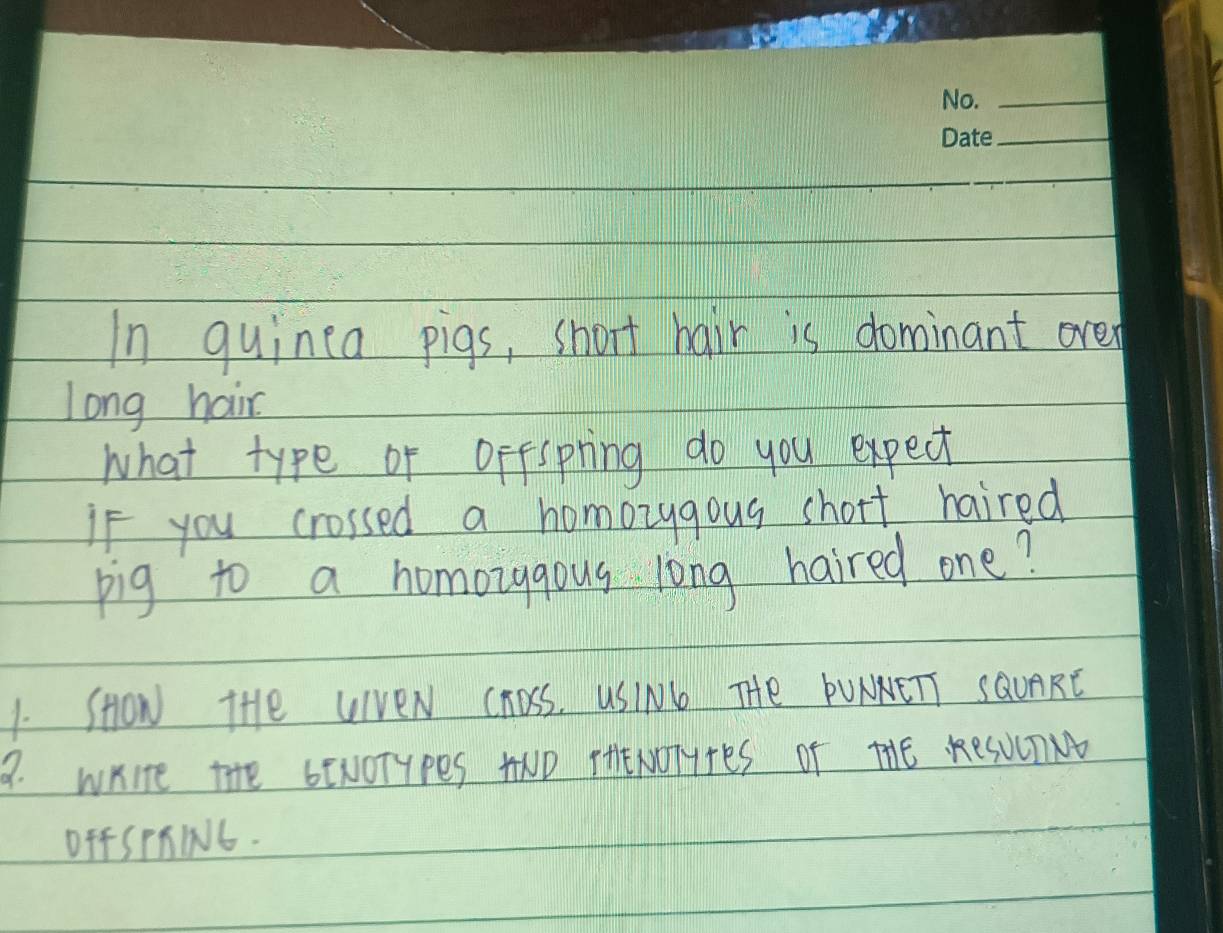 No.
Date
In guinea pigs, short hair is dominant over
long hair.
What type of offspring do you expect
if you crossed a homozygous short haired
pig to a homozygous long haired one?
1. SHOW THE GIVEN CROSS. USING THE PUNNETT SQUARE
2. WRITE THE GENOTYPES AND PHENOTYPES OF THE RESULTING
OFFSPRING.